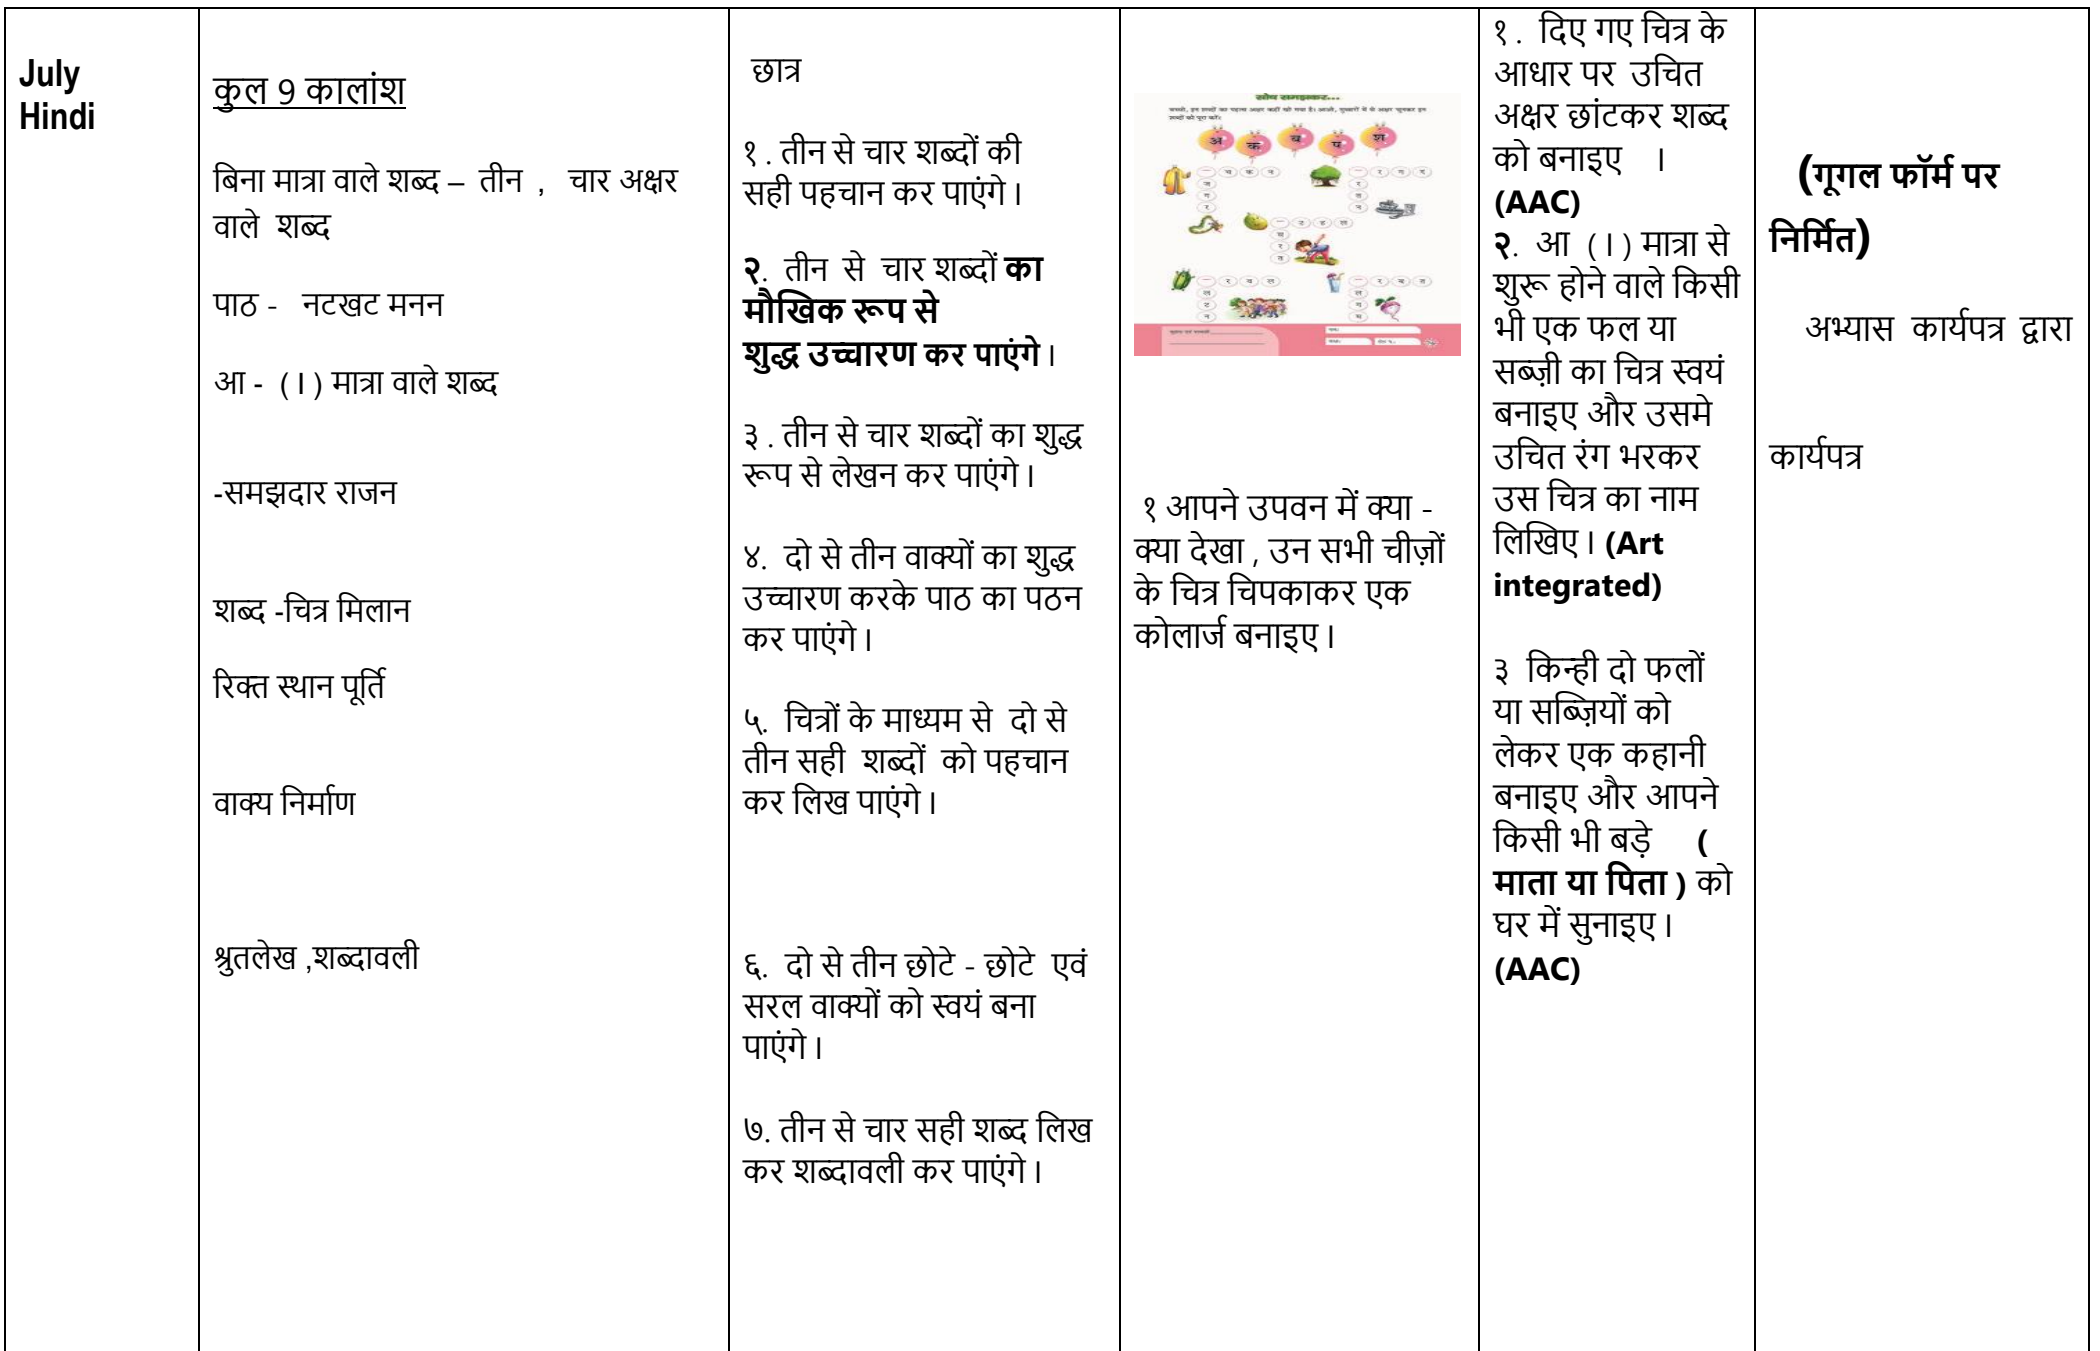 July
Hindi
कुल 9 कालांश
बिना मात्रा वाले शब्द – तीन , चार अक्षर
वाले शब्द
पाठ - नटखट मनन
आ - ( ा ) मात्रा वाले शब्द
-समझदार राजन
शब्द -चित्र मिलान
रिक्त स्थान पूर्ति
वाक्य निर्माण
श्रुतलेख ,शब्दावली
छात्र
१ . तीन से चार शब्दों की
सही पहचान कर पाएंगे ।
२. तीन से चार शब्दों का
मौखिक रूप से
शुद्ध उच्चारण कर पाएंगे ।
३ . तीन से चार शब्दों का शुद्ध
रूप से लेखन कर पाएंगे ।
४. दो से तीन वाक्यों का शुद्ध
उच्चारण करके पाठ का पठन
कर पाएंगे ।
५. चित्रों के माध्यम से दो से
तीन सही शब्दों को पहचान
कर लिख पाएंगे ।
६. दो से तीन छोटे - छोटे एवं
सरल वाक्यों को स्वयं बना
पाएंगे ।
७. तीन से चार सही शब्द लिख
कर शब्दावली कर पाएंगे ।
सोच समझकर...
अ क ब प श
१ आपने उपवन में क्या -
क्या देखा , उन सभी चीज़ों
के चित्र चिपकाकर एक
कोलार्ज बनाइए ।
१ . दिए गए चित्र के
आधार पर उचित
अक्षर छांटकर शब्द
को बनाइए ।
(AAC)
२. आ ( ा ) मात्रा से
शुरू होने वाले किसी
भी एक फल या
सब्ज़ी का चित्र स्वयं
बनाइए और उसमे
उचित रंग भरकर
उस चित्र का नाम
लिखिए । (Art
integrated)
३ किन्ही दो फलों
या सब्ज़ियों को
लेकर एक कहानी
बनाइए और आपने
किसी भी बड़े (
माता या पिता ) को
घर में सुनाइए ।
(AAC)
(गूगल फॉर्म पर
निर्मित)
अभ्यास कार्यपत्र द्वारा
कार्यपत्र